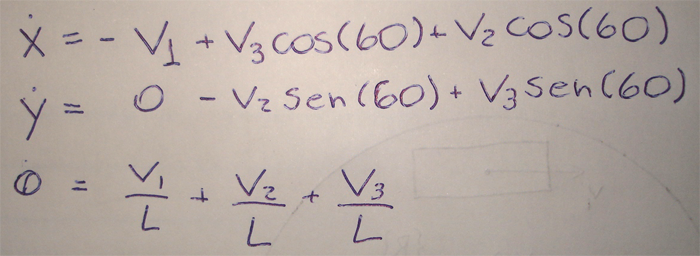 ẋ = - V₁ + V₃cos(60) + V₂cos(60)
ẏ = 0 - V₂sen(60) + V₃sen(60)
θ̇ = V₁/L + V₂/L + V₃/L